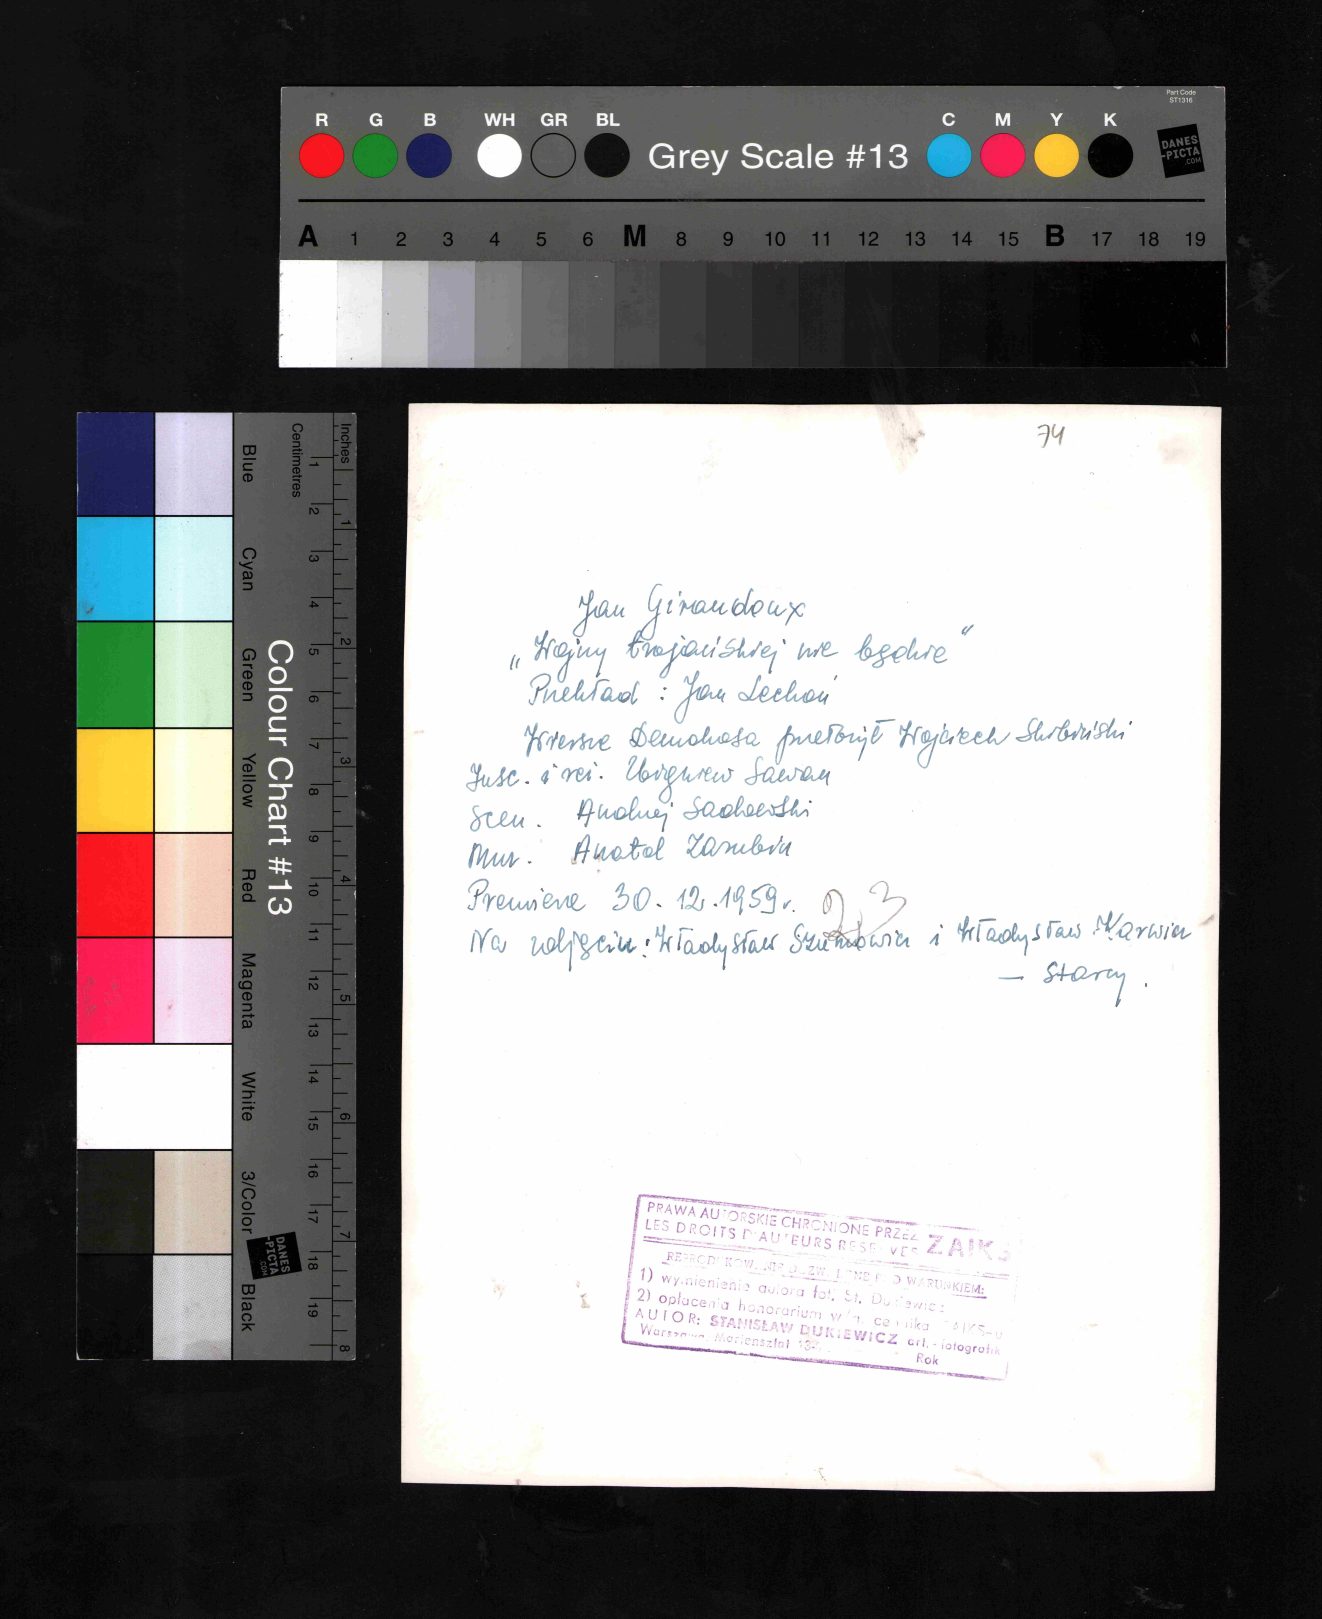 Part Code
ST1316
R G B WH GR BL C M Y K
Grey Scale #13
DANES
-PICTA
.COM
A 1 2 3 4 5 6 M 8 9 10 11 12 13 14 15 B 17 18 19
Colour Chart #13
Blue
Cyan
Green
Yellow
Red
Magenta
White
3/Color
Black
Centimetres
1 2 3 4 5 6 7 8 9 10 11 12 13 14 15 16 17 18 19
Inches
1 2 3 4 5 6 7 8
DANES
-PICTA
.COM
74
Jan Giraudoux
„Wojny trojańskiej nie będzie”
Przekład : Jan Lechoń
Wiersze Demokosa przełożył Wojciech Skibiński
Insc. i reż. Zbigniew Sawan
Scen. Andrzej Sadowski
Muz. Anatol Zarubin
Premiera 30.12.1959r.
23
Na zdjęciu: Władysław Szumowicz i Władysław Karwin
— starcy.
PRAWA AUTORSKIE CHRONIONE PRZEZ ZAIKS
LES DROITS D'AUTEURS RESERVES
REPRODUKOW. NIEDOZWOLONE POD WARUNKIEM:
1) wymienienie autora fot. St. Dukiewicz
2) opłacenia honorarium cennika ZAIKS-u
AUTOR: STANISŁAW DUKIEWICZ art.-fotografik
Warszawa Mariensztat
Rok